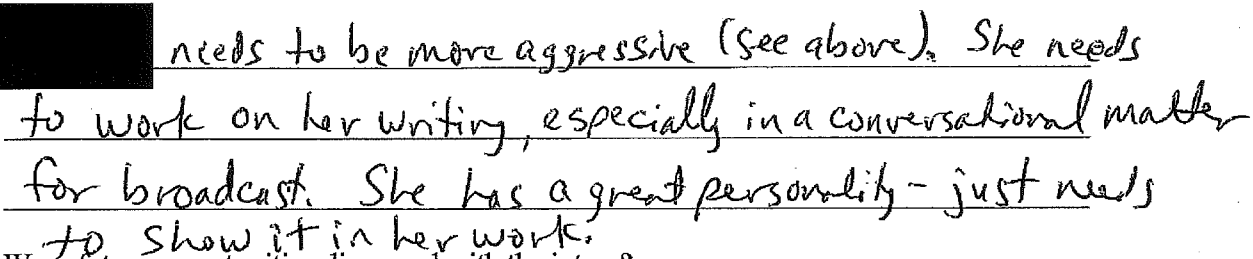 needs to be more aggressive (see above). She needs
to work on her writing, especially in a conversational matter
for broadcast. She has a great personality - just needs
to show it in her work.